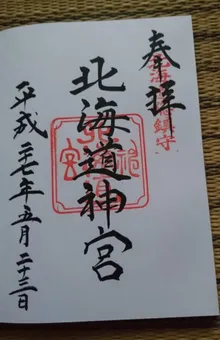 奉拝
鎮守
北海道神宮
平成二七年五月二十三日